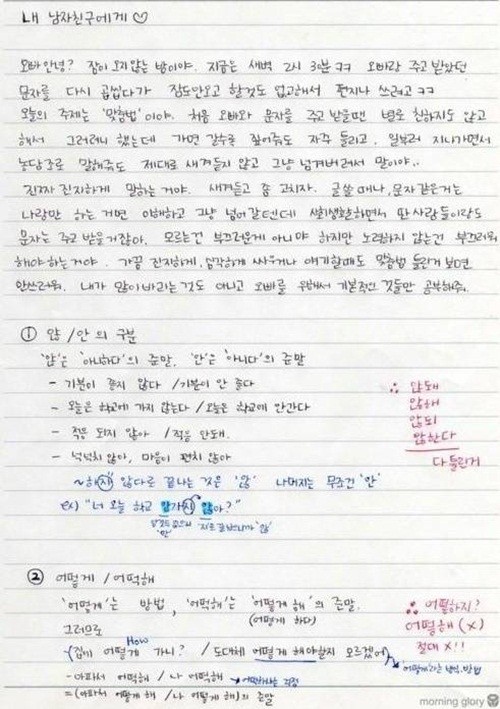 내 남자친구에게 ♡
오빠 안녕? 잠이 오지 않는 밤이야. 지금은 새벽 2시 30분 ㅋㅋ 오빠랑 주고 받았던
문자를 다시 곱씹다가 잠도 안오고 할것도 없고해서 편지나 쓰려고 ㅋㅋ
오늘의 주제는 '맞춤법' 이야. 처음 오빠와 문자를 주고 받을땐 별로 친하지도 않고
해서 그러려니 했는데 가면 갈수록 짚어줘도 자주 틀리고, 일부러 지나가면서
농담조로 말해줘도 제대로 새겨듣지 않고 그냥 넘겨버려서 말이야..
진짜 진지하게 말하는 거야. 새겨듣고 좀 고치자. 글쓸 때나, 문자 같은거는
나랑만 하는 거면 이해하고 그냥 넘어갈텐데 사회생활하면서 딴 사람들이랑도
문자는 주고 받을거잖아. 모르는건 부끄러운게 아니야 하지만 노력하지 않는건 부끄러워
해야 하는거야. 가끔 진지하게, 심각하게 싸우거나 얘기할때도 맞춤법 틀린거 보면
안쓰러워. 내가 많이 바라는 것도 아니고 오빠를 위해서 기본적인 것들만 공부해줘.
① 않 / 안 의 구분
'않'은 '아니하다'의 준말, '안'은 '아니다'의 준말
- 기분이 좋지 않다 / 기분이 안 좋다
- 오늘은 학교에 가지 않는다 / 오늘은 학교에 안간다
- 적응 되지 않아 / 적응 안돼.
- 넉넉치 않아, 마음이 편치 않아
∴ 않돼
않해
않되
않한다
다 틀린거
~해지 않다로 끝나는 것은 '않' 나머지는 무조건 '안'
ex) "너 오늘 학교 안가지 않아?"
'안'
② 어떻게 / 어떡해
'어떻게'는 방법, '어떡해'는 '어떻게 해'의 준말.
(어떻게 하다)
그러므로
How
- (집에 어떻게 가니? / 도대체 어떻게 해야할지 모르겠어)
- 아파서 어떡해 / 나 어떡해
= (아파서 어떻게 해 / 나 어떻게 해)의 준말
∴ 어떡하지?
어떻해 (X)
절대 X!!
morning glory